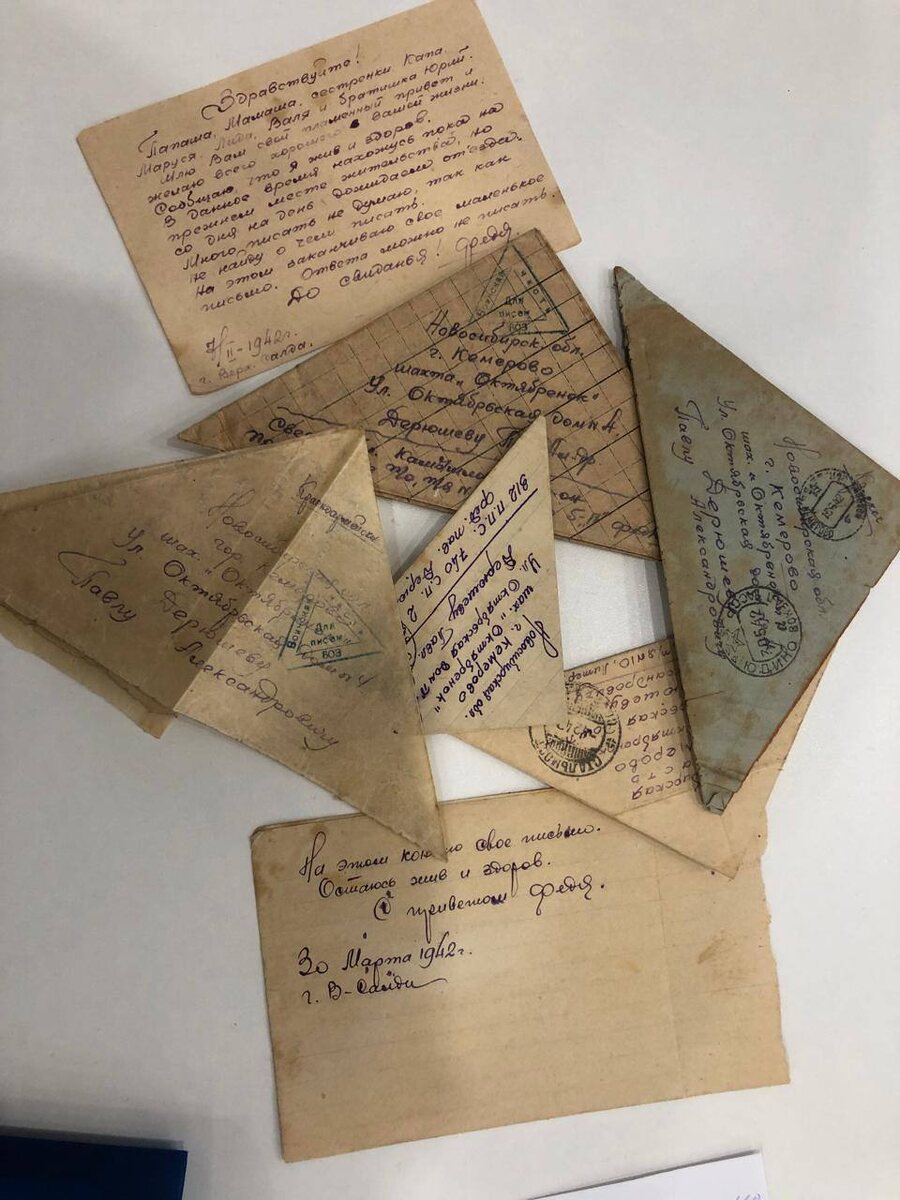 Здравствуйте!
Папаша, Мамаша, сестренки Капа,
Маруся, Лида, Валя и братишка Юрий.
Шлю Вам свой пламенный привет и
желаю всего хорошего в вашей жизни.
Сообщаю, что я жив и здоров.
В данное время нахожусь пока на
прежнем месте жительства, но
со дня на день дожидаем отъезда.
Много писать не думаю, так как
не найду о чем писать.
На этом заканчиваю свое маленькое
письмо. Ответа можно не писать.
До свиданья! Федя
II-1942г.
г. Верх. Салда.
Воинская
Для
писем
603
Новосибирск. обл.
г. Кемерово
шахта „Октябренок"
Ул. Октябрьская дом № 4
Дерюшеву
Красноармейское
Новосибирская
гор. Кемерово
шах. „Октябренок"
Ул. Октябрьская дом № 4
Дерюшеву
Павлу Александровичу
Воинская
Для
писем
603
Новосибирская обл.
г. Кемерово
шах. „Октябренок"
Ул. Октябрьская дом
Дерюшеву Павл.
812 П.П.С. 740 С.П. 2
Новосибирская обл.
г. Кемерово
шах. „Октябренок"
Ул. Октябрьская дом
Дерюшеву
Павлу Александровичу
На этом кончаю свое письмо.
Остаюсь жив и здоров.
С приветом Федя.
30 Марта 1942г.
г. В-Салда